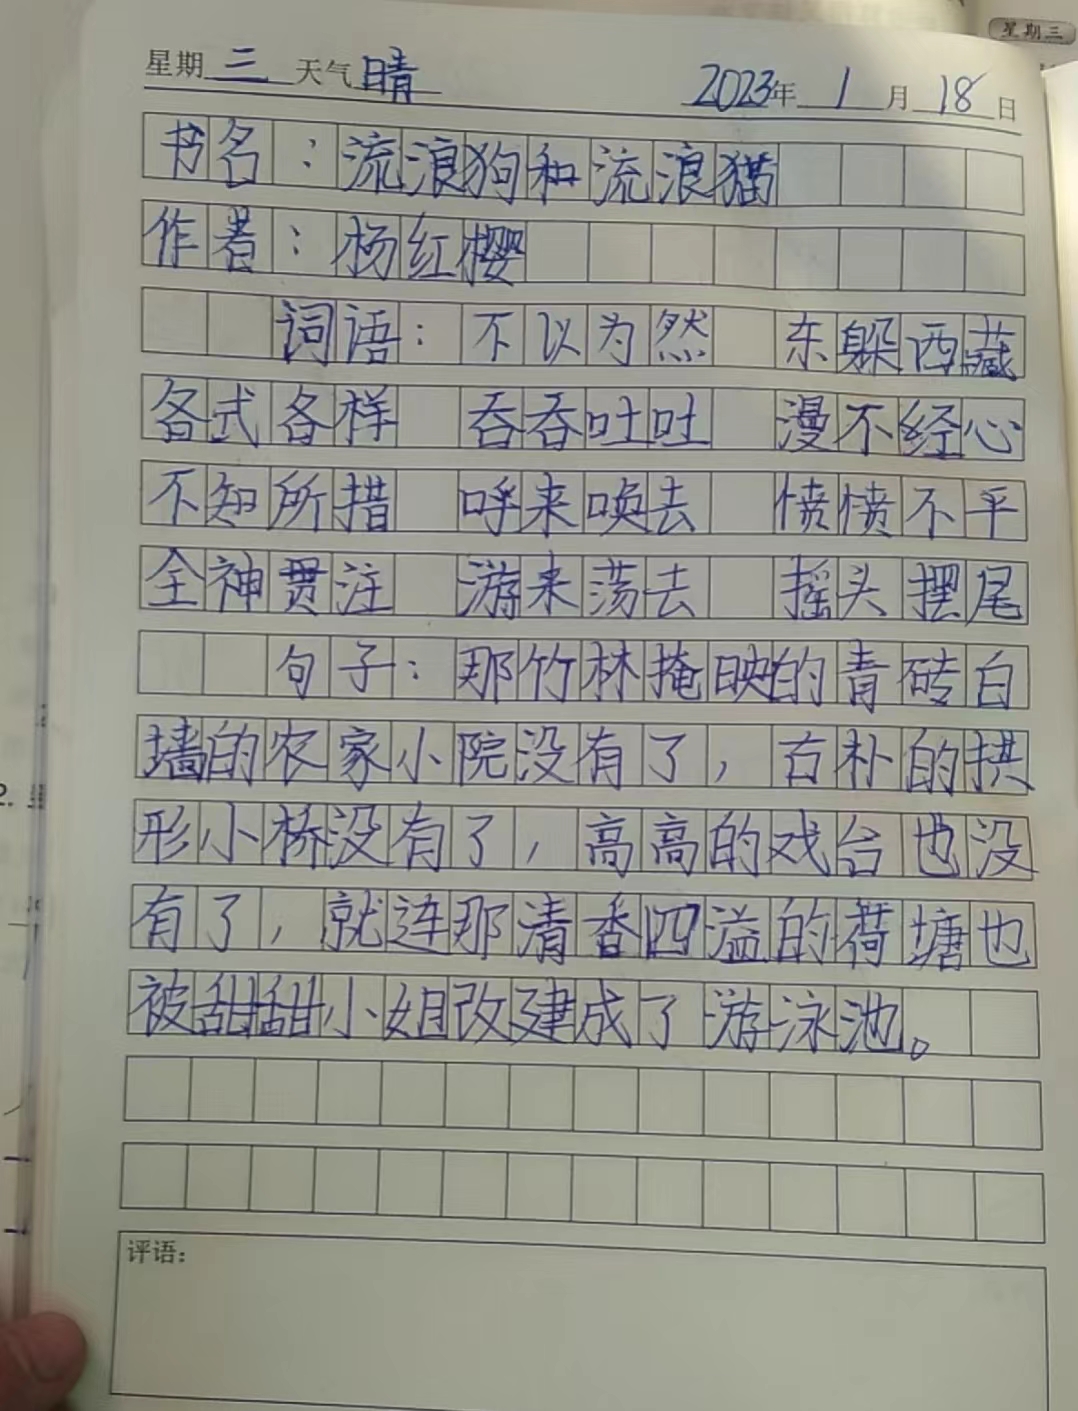 星期三
星期三 天气晴 2023年1月18日
书名：流浪狗和流浪猫
作者：杨红樱
词语：不以为然 东躲西藏
各式各样 吞吞吐吐 漫不经心
不知所措 呼来唤去 愤愤不平
全神贯注 游来荡去 摇头摆尾
句子：那竹林掩映的青砖白
墙的农家小院没有了，古朴的拱
形小桥没有了，高高的戏台也没
有了，就连那清香四溢的荷塘也
被甜甜小姐改建成了游泳池。
评语：